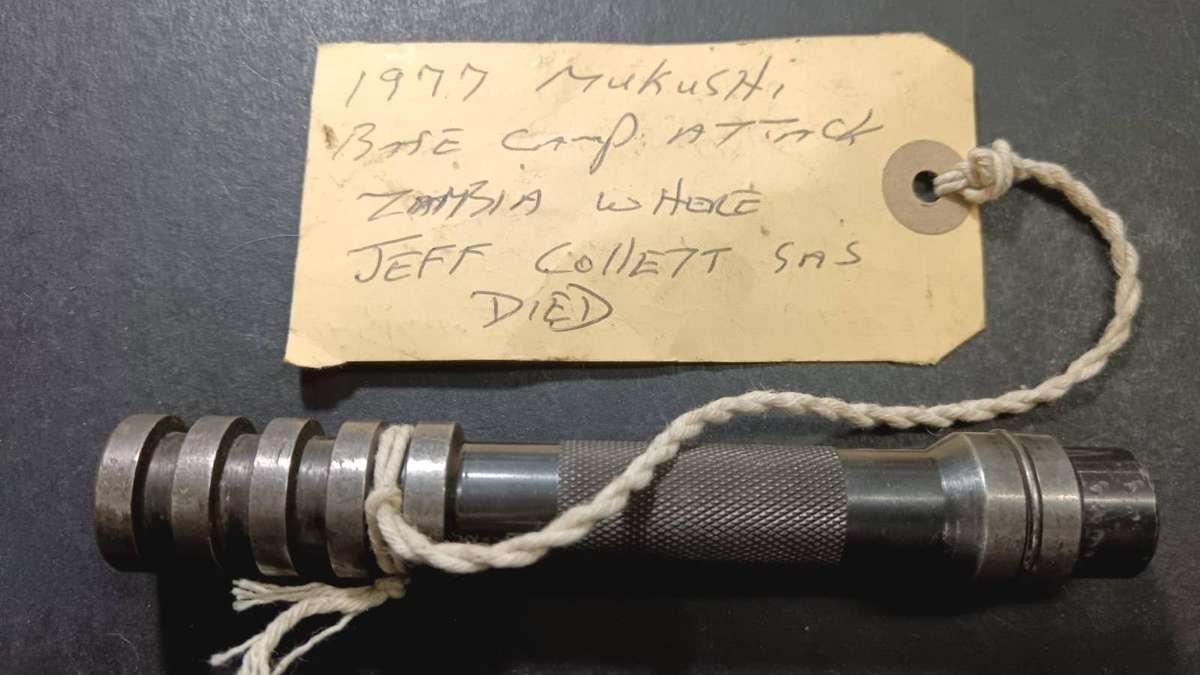 1977 MUKUSHI
BASE CAMP ATTACK
ZAMBIA WHERE
JEFF COLLETT SAS
DIED